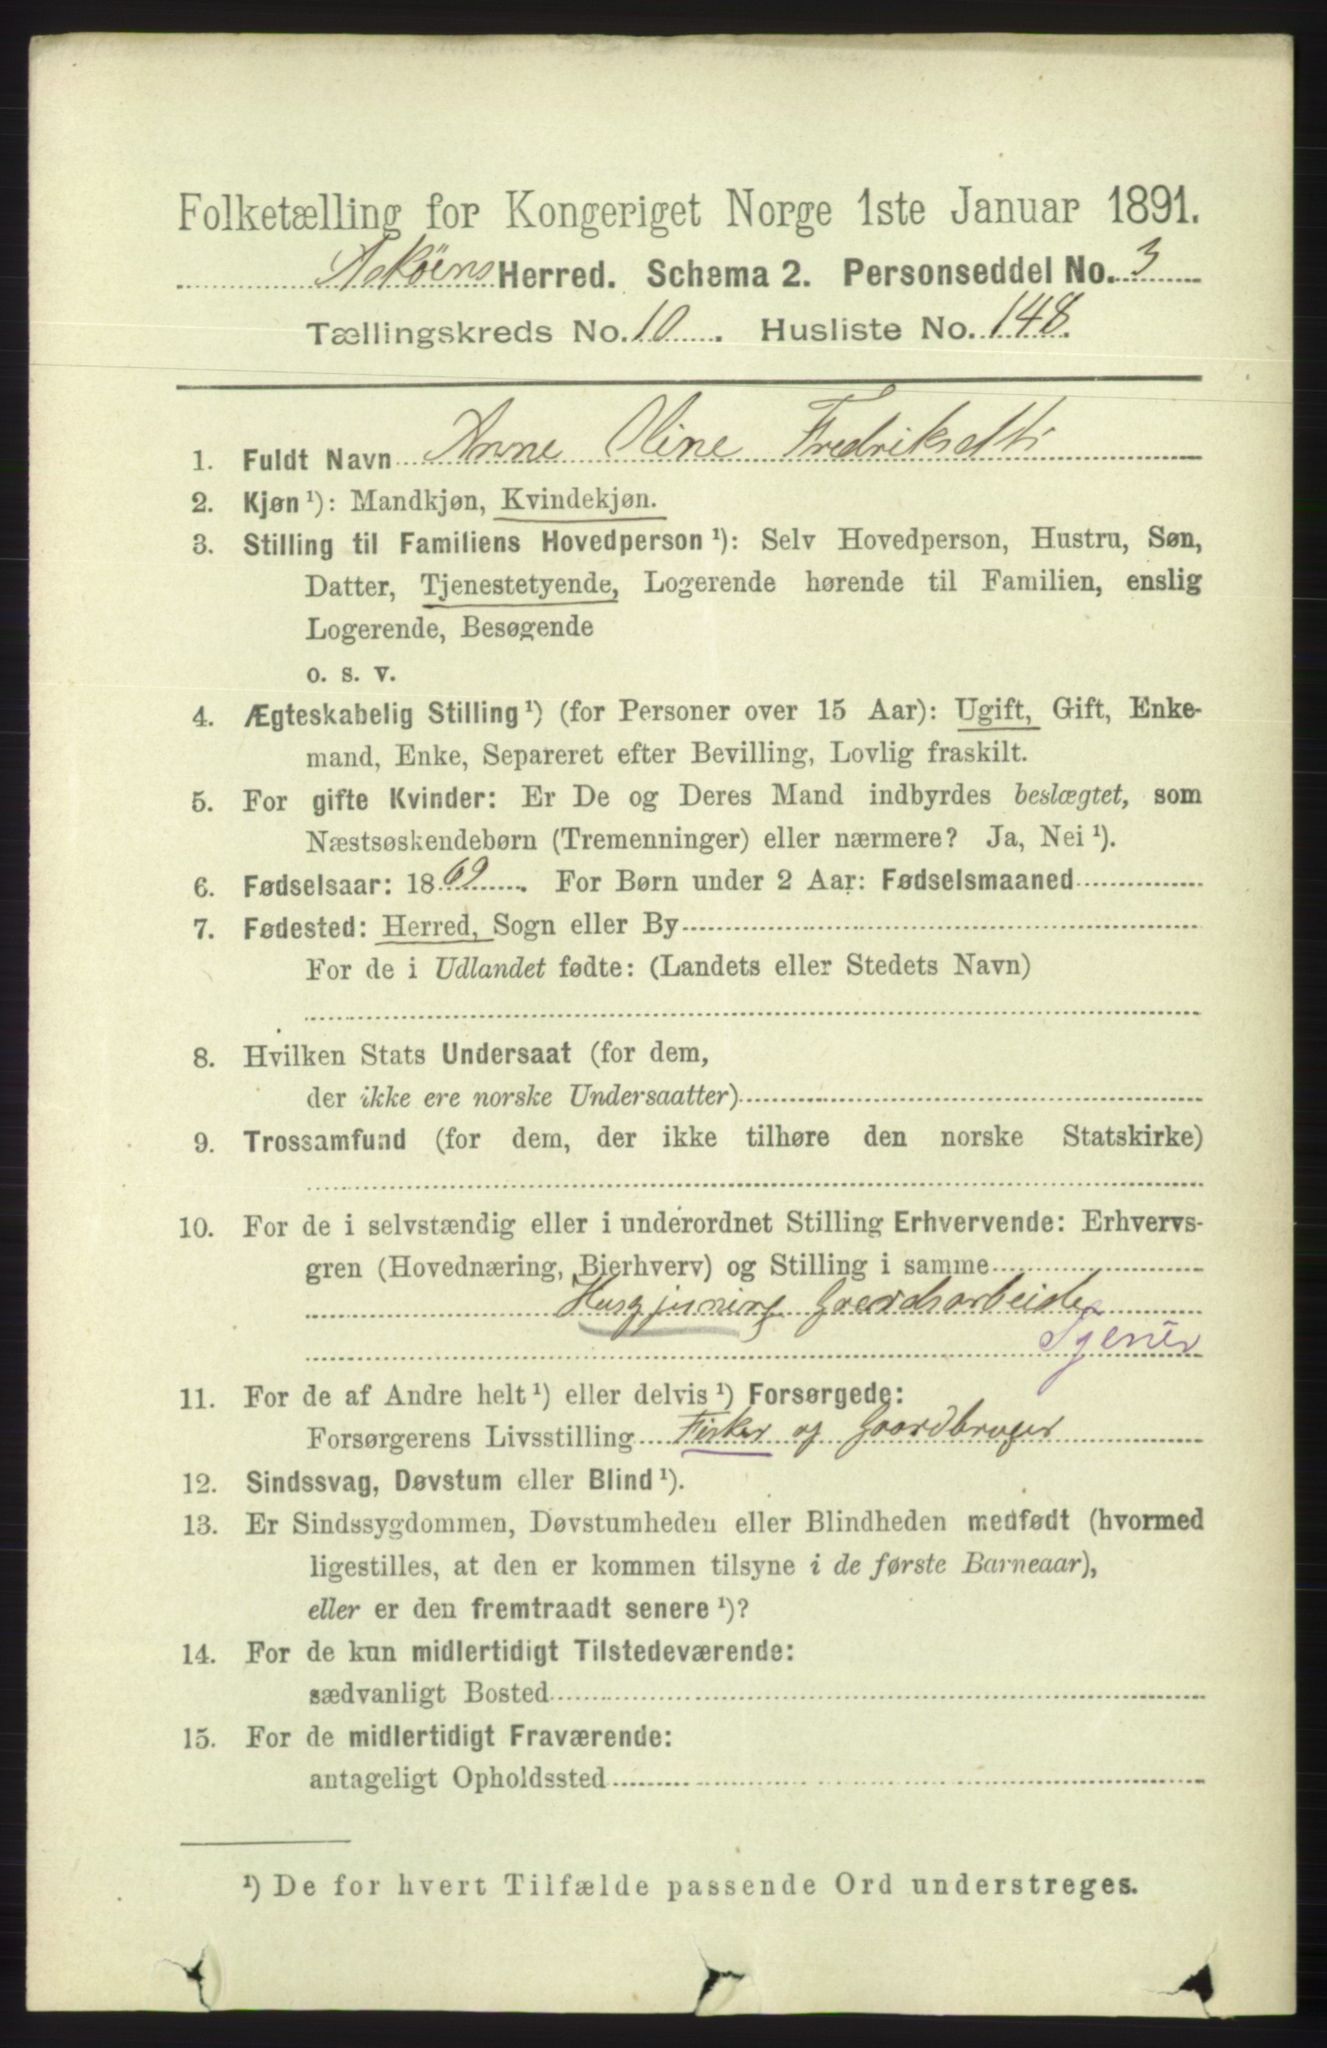 Folketælling for Kongeriget Norge 1ste Januar 1891.
Askøens Herred. Schema 2. Personseddel No. 3
Tællingskreds No. 10. Husliste No. 148.
1. Fuldt Navn Anne Oline Fredriksdtr
2. Kjøn ¹): Mandkjøn, Kvindekjøn.
3. Stilling til Familiens Hovedperson ¹): Selv Hovedperson, Hustru, Søn,
Datter, Tjenestetyende, Logerende hørende til Familien, enslig
Logerende, Besøgende
o. s. v.
4. Ægteskabelig Stilling ¹) (for Personer over 15 Aar): Ugift, Gift, Enke-
mand, Enke, Separeret efter Bevilling, Lovlig fraskilt.
5. For gifte Kvinder: Er De og Deres Mand indbyrdes beslægtet, som
Næstsøskendebørn (Tremenninger) eller nærmere? Ja, Nei ¹).
6. Fødselsaar: 1869. For Børn under 2 Aar: Fødselsmaaned
7. Fødested: Herred, Sogn eller By
For de i Udlandet fødte: (Landets eller Stedets Navn)
8. Hvilken Stats Undersaat (for dem,
der ikke ere norske Undersaatter)
9. Trossamfund (for dem, der ikke tilhøre den norske Statskirke)
10. For de i selvstændig eller i underordnet Stilling Erhvervende: Erhvervs-
gren (Hovednæring, Bierhverv) og Stilling i samme
Husgjerning
11. For de af Andre helt ¹) eller delvis ¹) Forsørgede:
Forsørgerens Livsstilling Fisker og Gaardbruger
12. Sindssvag, Døvstum eller Blind ¹).
13. Er Sindssygdommen, Døvstumheden eller Blindheden medfødt (hvormed
ligestilles, at den er kommen tilsyne i de første Barneaar),
eller er den fremtraadt senere ¹)?
14. For de kun midlertidigt Tilstedeværende:
sædvanligt Bosted
15. For de midlertidigt Fraværende:
antageligt Opholdssted
¹) De for hvert Tilfælde passende Ord understreges.